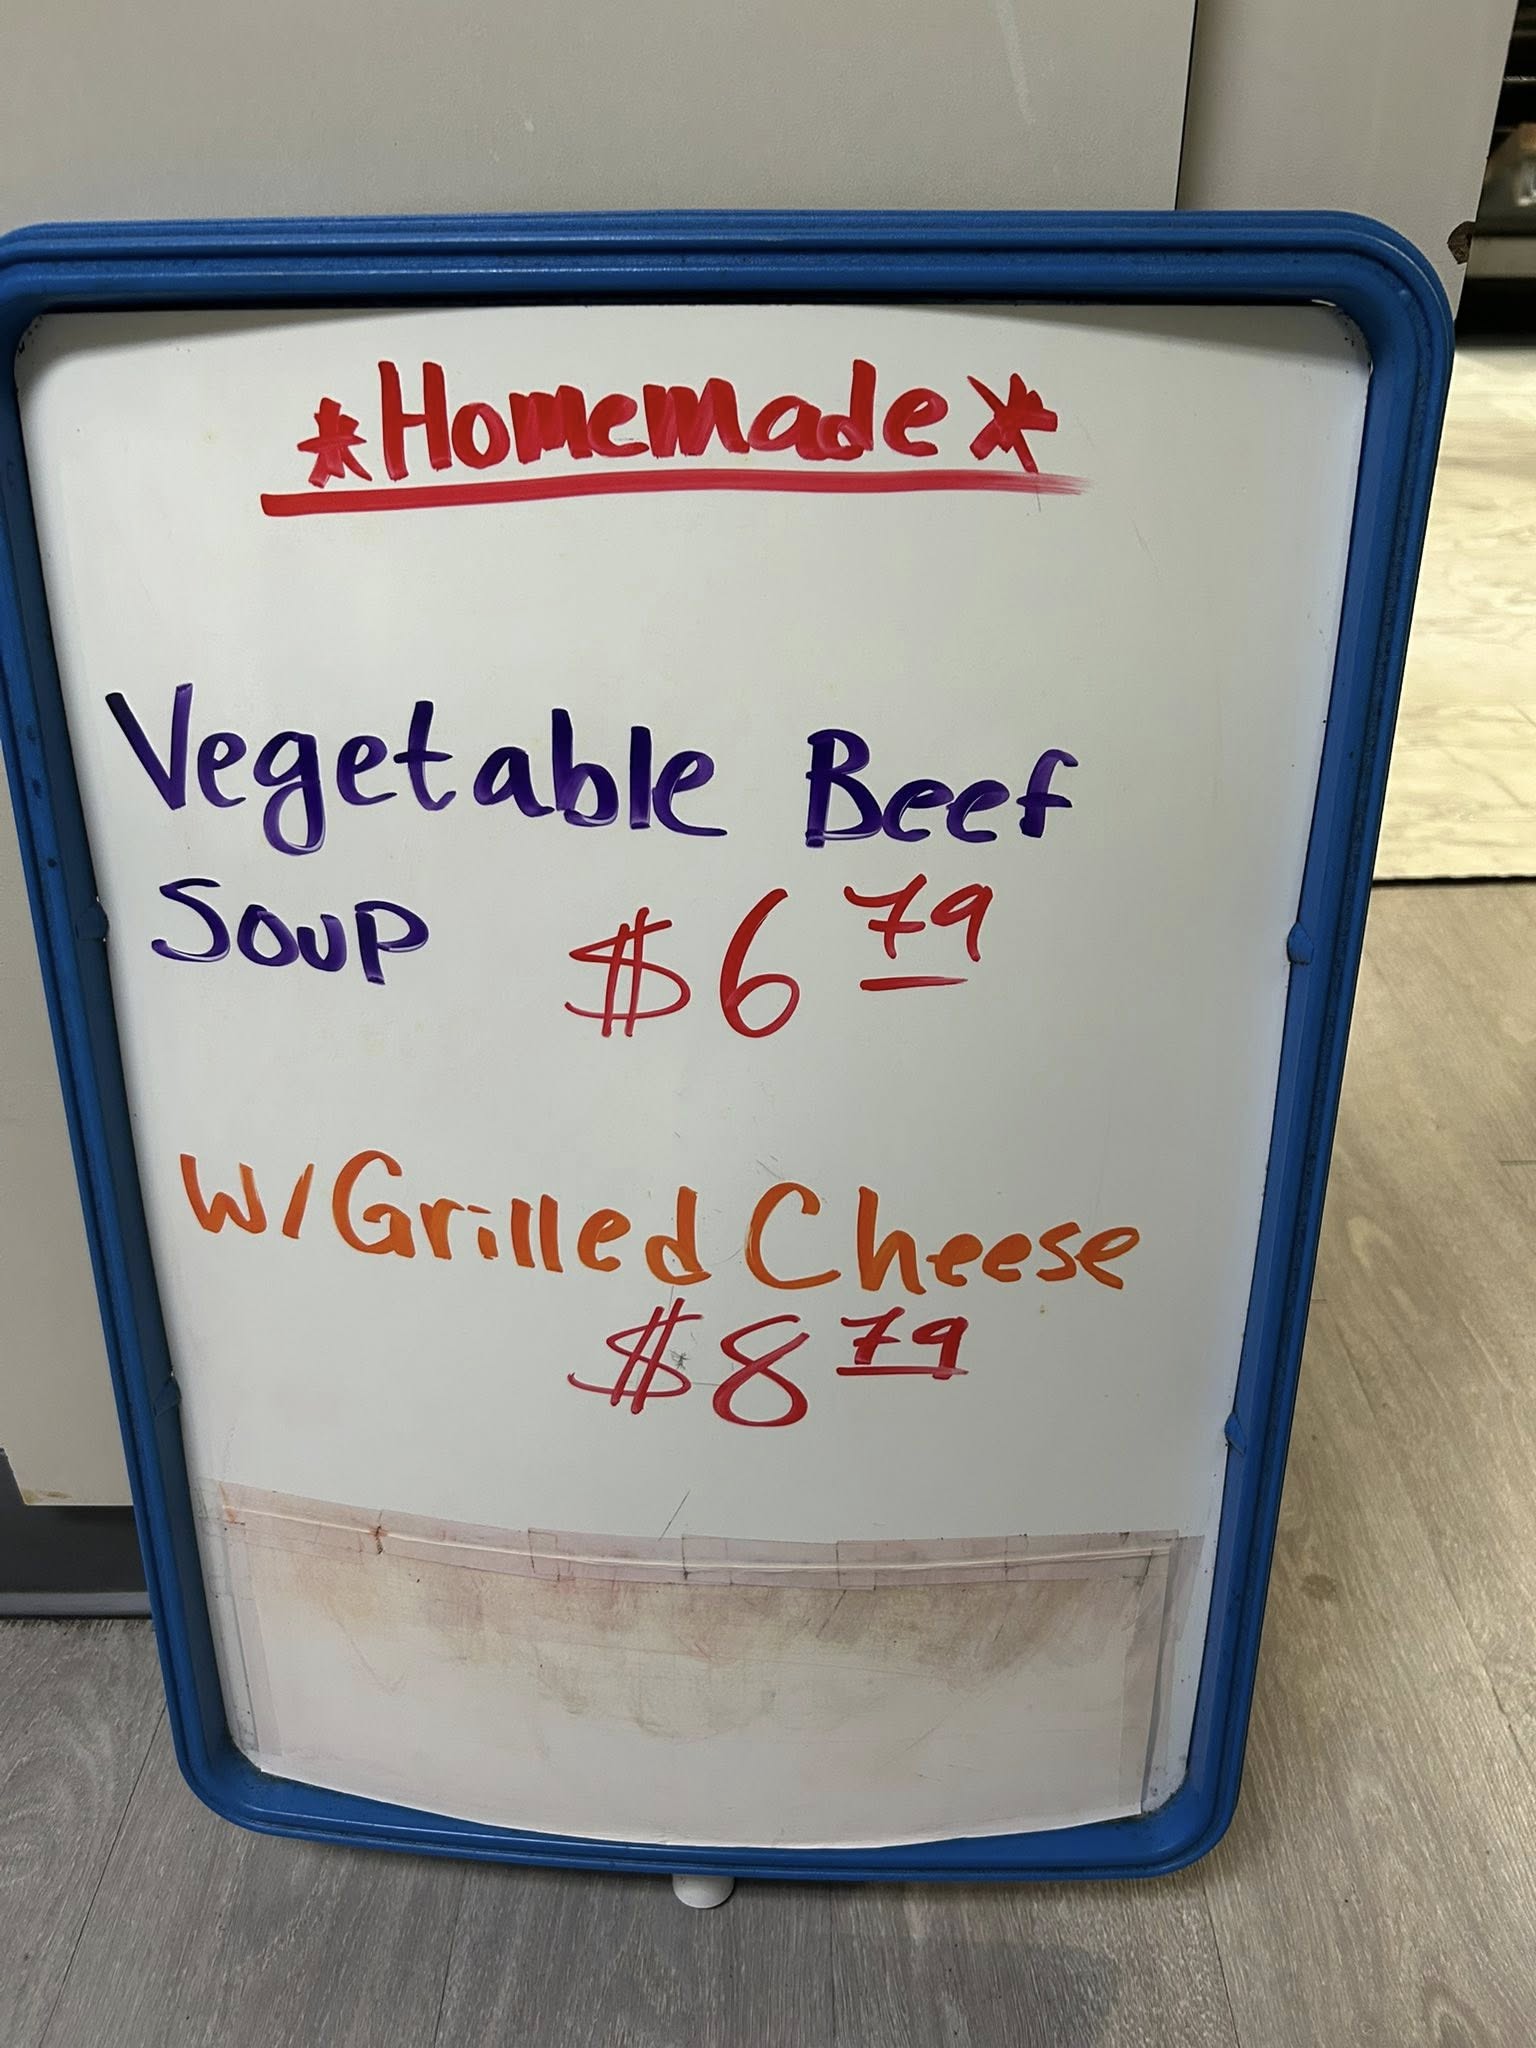 *Homemade*
Vegetable Beef
Soup $6 79
W/Grilled Cheese
$8 79